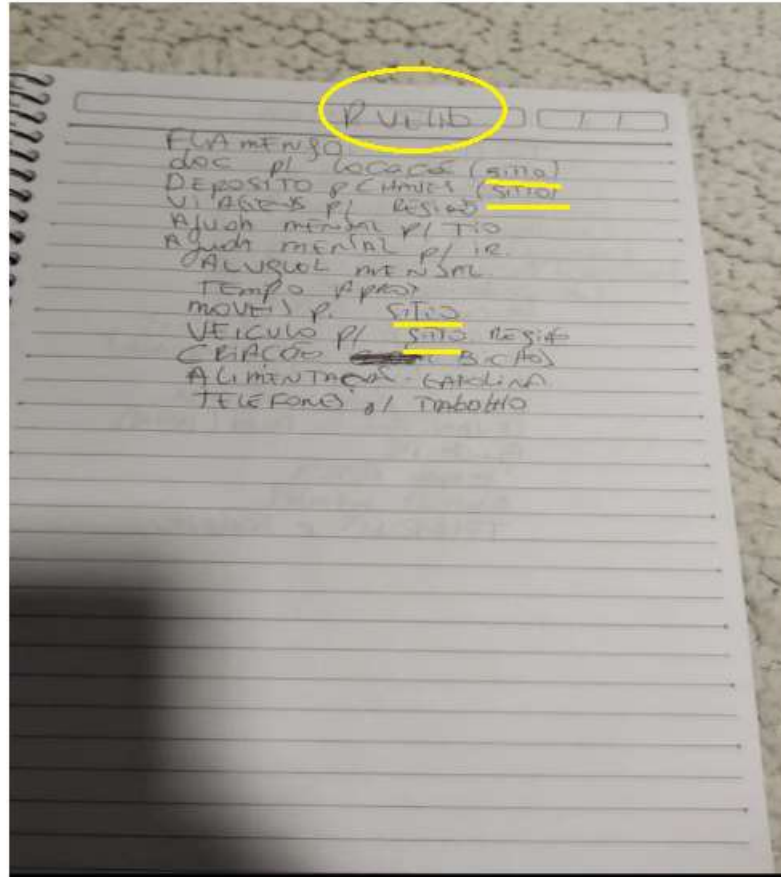 P VELHO
FLAMENGO
DOC P/ LOCAÇÃO (SITIO)
DEPOSITO P CHAVES (SITIO)
VIAGENS P/ REGIÃO
AJUDA MENSAL P/ TIO
AJUDA MENSAL P/ IR.
ALUGUEL MENSAL
TEMPO APROX
MOVEIS P. SITIO
VEICULO P/ SITIO REGIÃO
CRIAÇÃO BICHOS
ALIMENTAÇÃO - CAROLINA
TELEFONES P/ TRABALHO